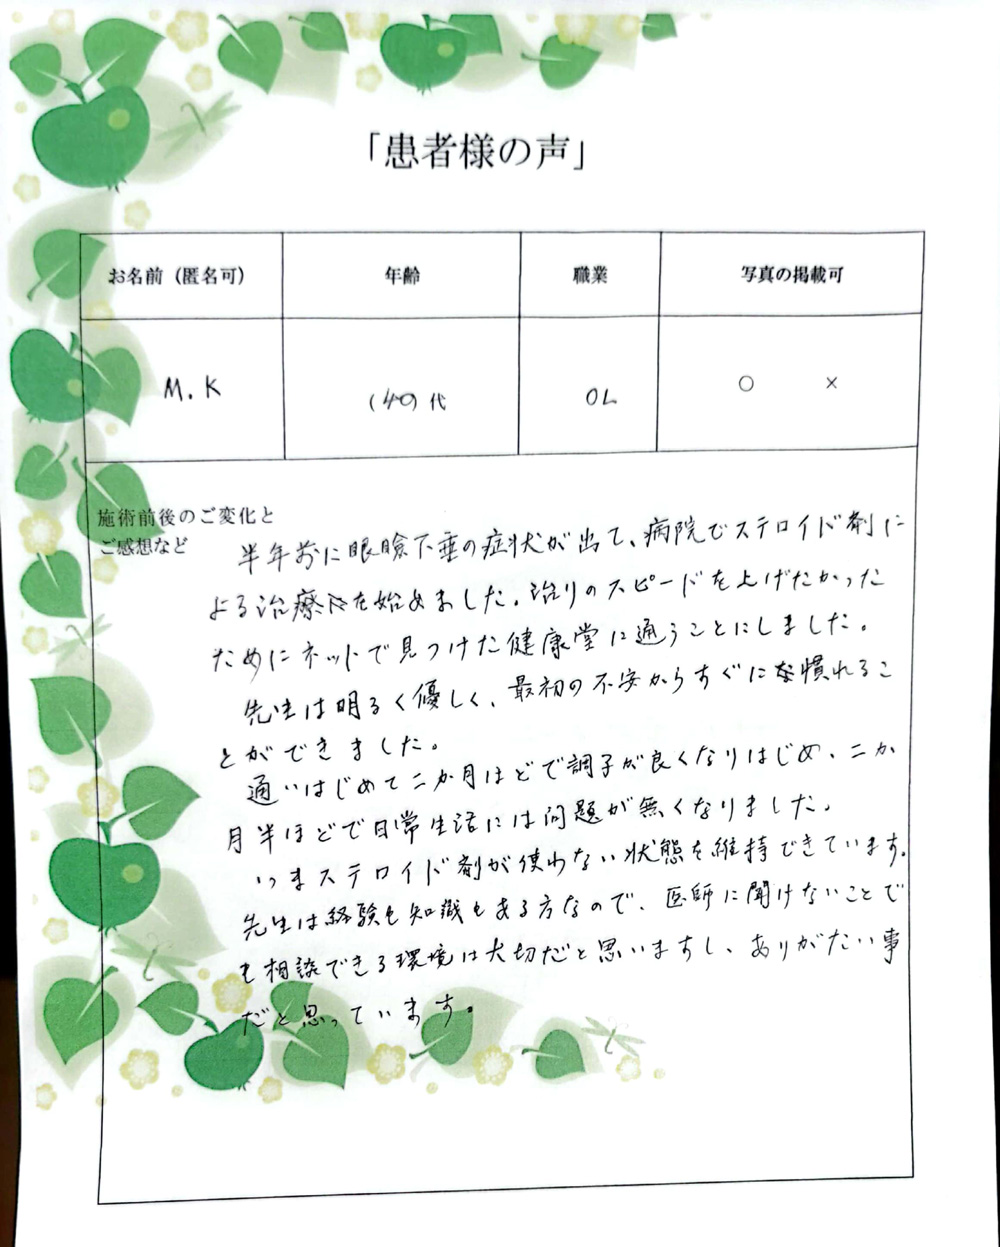 「患者様の声」
お名前（匿名可） 年齢 職業 写真の掲載可
M.K （40）代 OL ○ ×
施術前後のご変化と
ご感想など
半年前に眼瞼下垂の症状が出て、病院でステロイド剤に
よる治療を始めました。治りのスピードを上げたかった
ためにネットで見つけた健康堂に通うことにしました。
先生は明るく優しく、最初の不安からすぐに慣れるこ
とができました。
通いはじめて二か月ほどで調子が良くなりはじめ、二か
月半ほどで日常生活には問題が無くなりました。
いまステロイド剤が使わない状態を維持できています。
先生は経験も知識もある方なので、医師に聞けないことで
も相談できる環境は大切だと思いますし、ありがたい事
だと思っています。